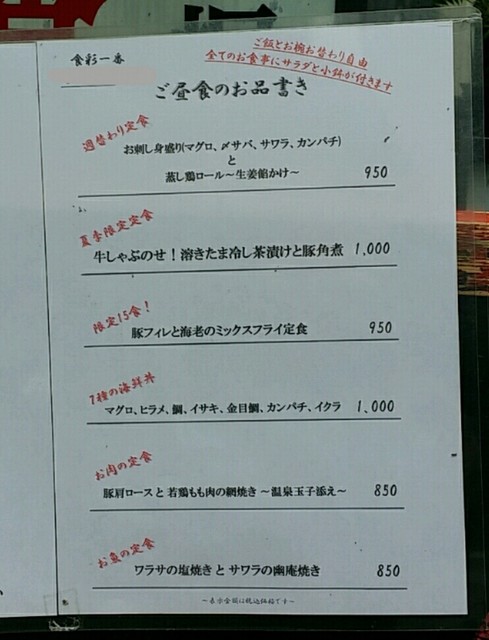 食彩一番
ご飯とお椀お替わり自由
全てのお食事にサラダと小鉢が付きます
ご昼食のお品書き
週替わり定食
お刺し身盛り(マグロ、〆サバ、サワラ、カンパチ)
と
蒸し鶏ロール～生姜餡かけ～ 950
夏季限定定食
牛しゃぶのせ！溶きたま冷し茶漬けと豚角煮 1,000
限定15食！
豚フィレと海老のミックスフライ定食 950
7種の海鮮丼
マグロ、ヒラメ、鯛、イサキ、金目鯛、カンパチ、イクラ 1,000
お肉の定食
豚肩ロースと若鶏もも肉の網焼き ～温泉玉子添え～ 850
お魚の定食
ワラサの塩焼き と サワラの幽庵焼き 850
～表示金額は税込価格です～